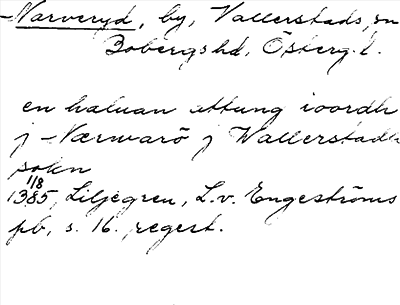 Narveryd, by, Vallerstads, sn
Bobergs hd, Österg. l.
en haluan attung ioordh
j Nærwarö j Wallerstadh
sokn
1/8
1385, Liljegren, L. v. Engeströms
pb, s. 16. regest.